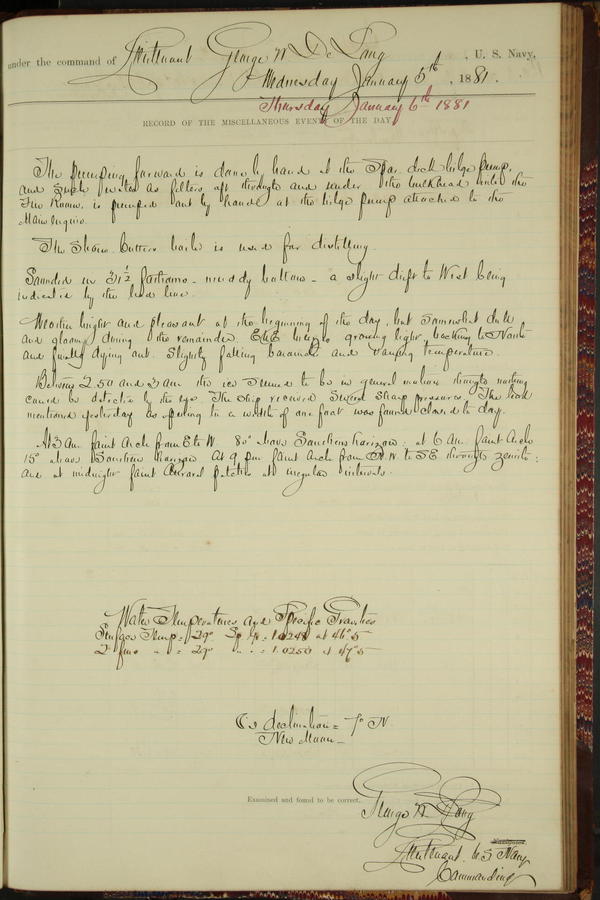 under the command of Lieutenant George W De Long, U. S. Navy,
Wednesday January 5th, 1881.
Thursday January 6th 1881
RECORD OF THE MISCELLANEOUS EVENTS OF THE DAY.
The pumping forward is done by hand at the Spar deck bilge pump,
and such water as filters aft through and under the bulkhead into the
Fire Room is pumped out by hand at the bilge pump attached to the
Main Engine.
The Steam Cutters boiler is used for distilling.
Sounded in 31½ fathoms - muddy bottom - a slight drift to West being
indicated by the lead line.
Weather bright and pleasant at the beginning of the day, but somewhat dull
and gloomy during the remainder. breeze growing light, backing to North
and finally dying out. Slightly falling barometer and varying temperature.
Between 2.50 and 3 am the ice seemed to be in general motion though nothing
could be detected by the eye. The ship received several sharp pressures. The lead
mentioned yesterday as opening to a width of one foot was found closed to day.
At 3 am faint Arch from E to W 80° above Southern horizon: at 6 am faint Arch
15° above Southern horizon At 9 pm faint Arch from N W to SE through zenith:
and at midnight faint Auroral patches at irregular intervals.
Water Temperatures and Specific Gravities
Surface Temp = 29° Sp Gr = 1.0248 at 46°.5
2 fms " = 29° " " = 1.0250 at 47°.5
☾'s declination = 7° N
New Moon -
Examined and found to be correct.
George W De Long
Lieutenant U.S. Navy
Commanding